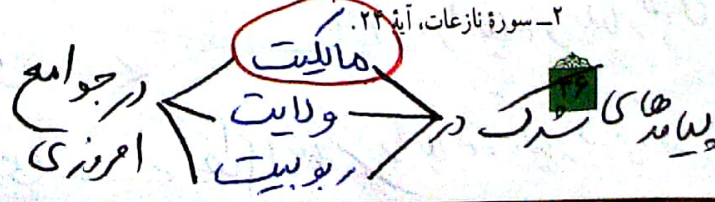 ۲ـ سورهٔ نازعات، آیهٔ ۲۴.
۲۶
پیامدهای شرک در
مالکیت
ولایت
ربوبیت
در جوامع
امروزی